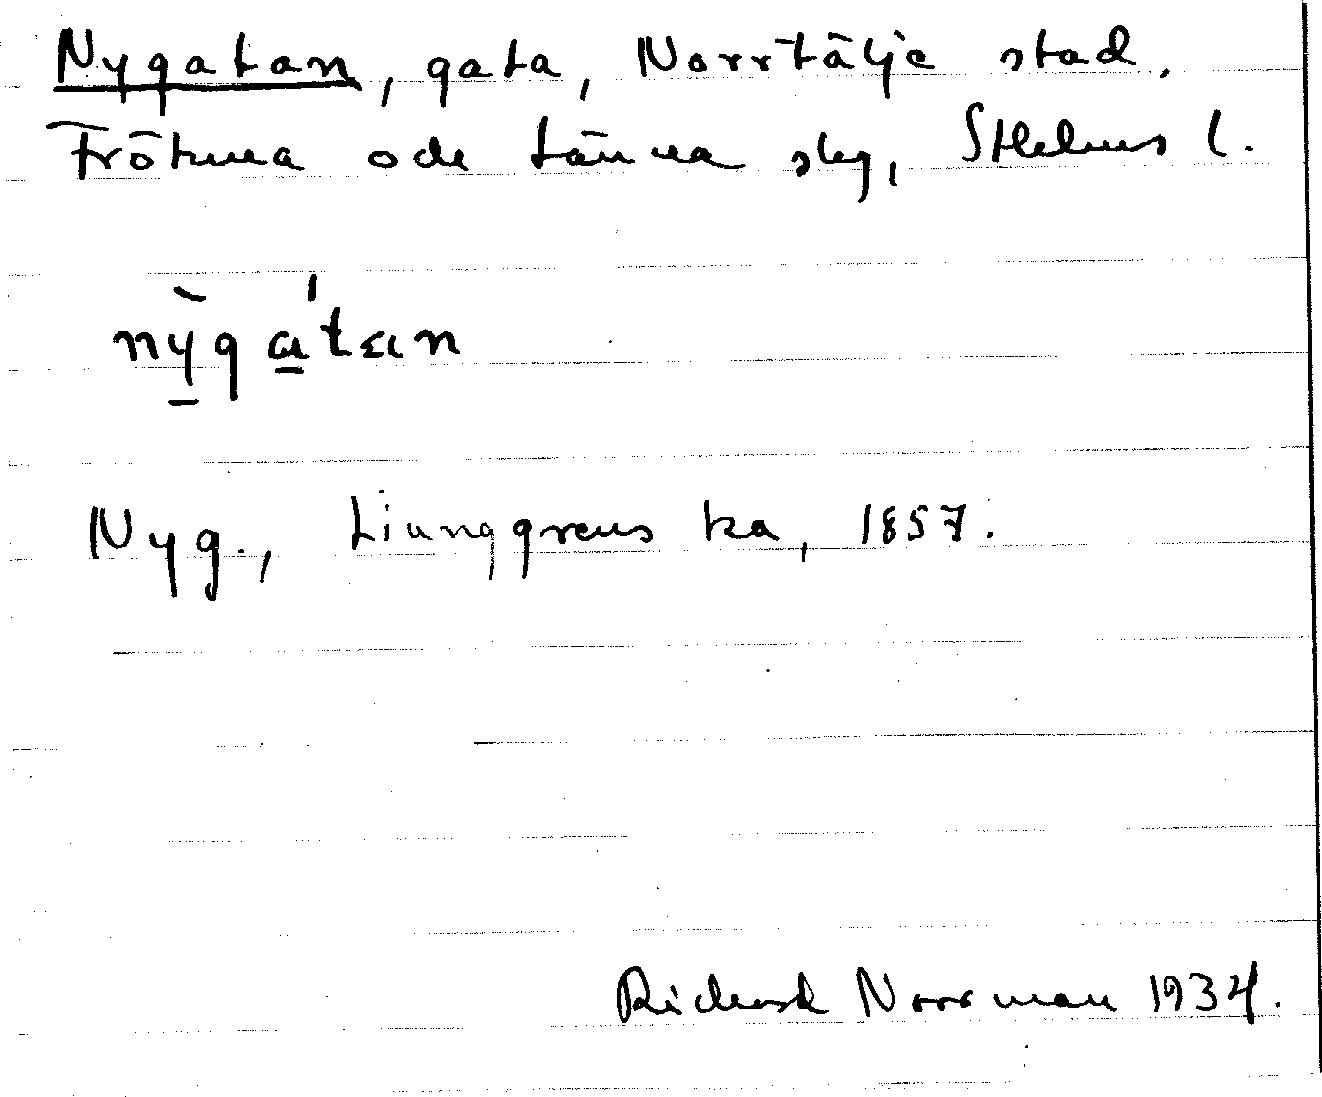 Nygatan, gata, Norrtälje stad,
Frötuna och Länna slg, Sthlms l.
nỳgátan
Nyg., Ljunggrens ka, 1857.
Rickard Norrman 1934.